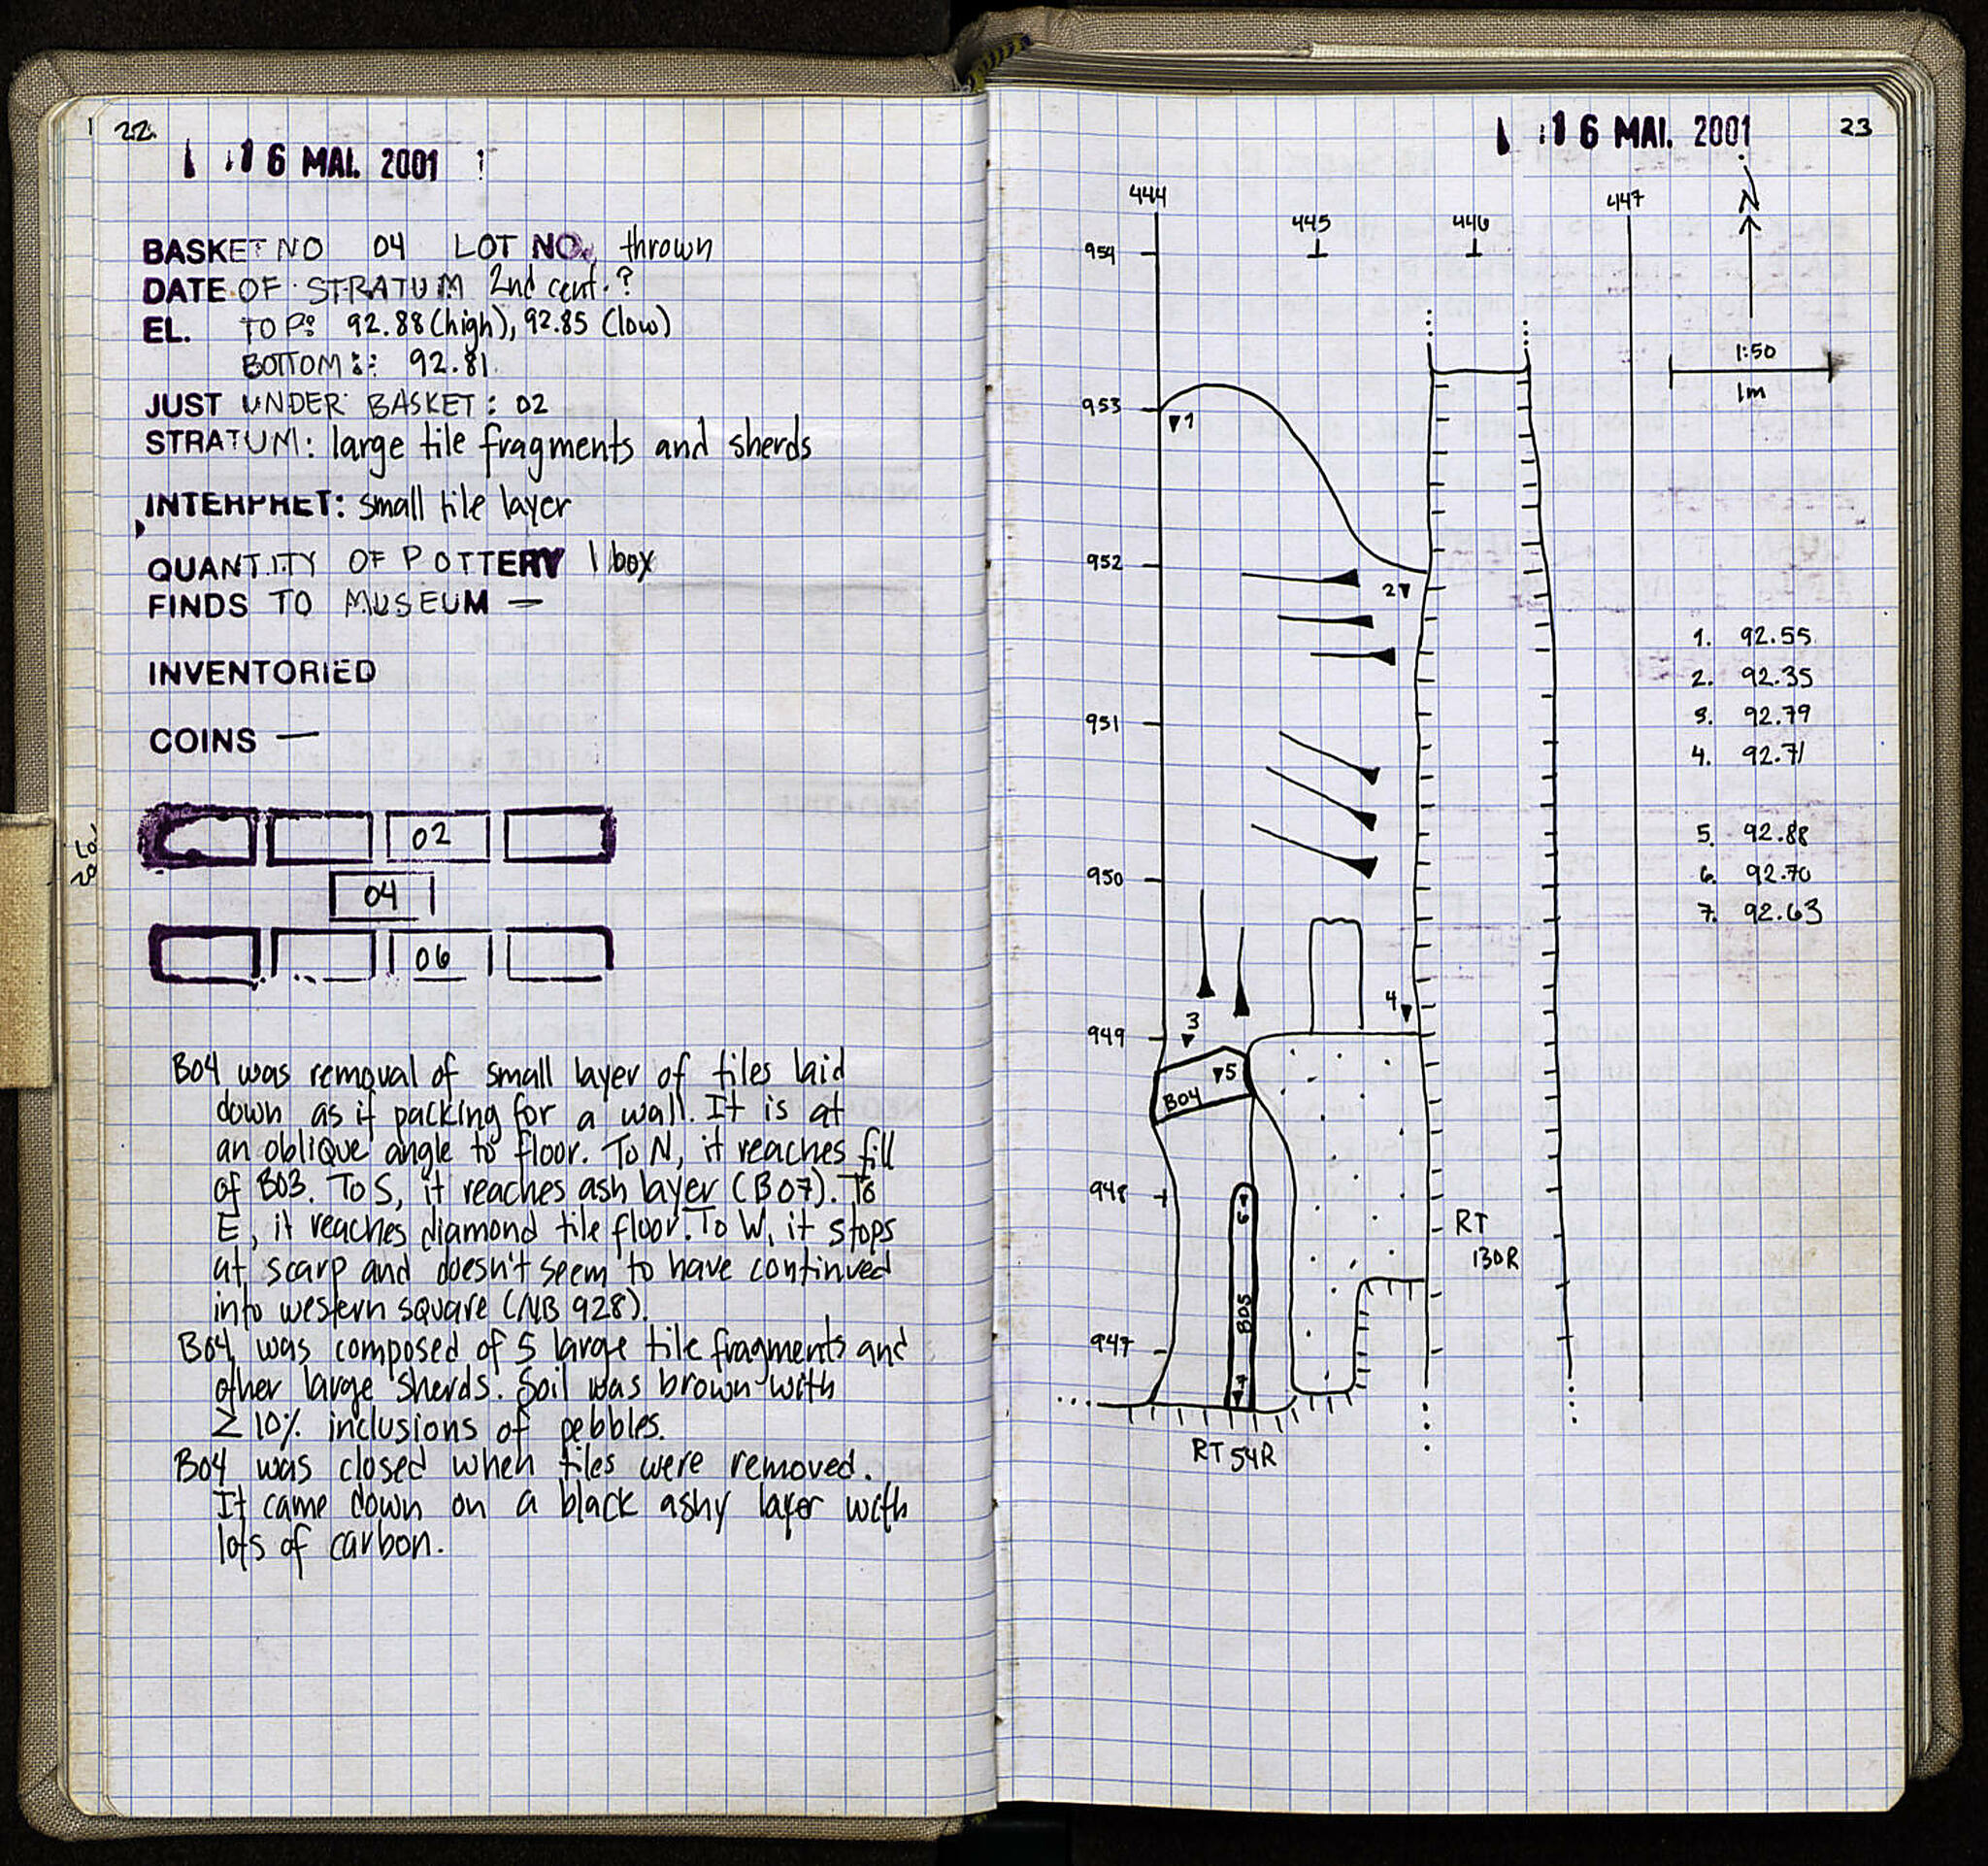 22.
16 MAI. 2001
BASKET NO 04 LOT NO. thrown
DATE OF STRATUM 2nd cent. ?
EL. TOP: 92.88 (high), 92.85 (low)
BOTTOM: 92.81
JUST UNDER BASKET: 02
STRATUM: large tile fragments and sherds
INTERPRET: small tile layer
QUANTITY OF POTTERY 1 box
FINDS TO MUSEUM —
INVENTORIED
COINS —
02
04
06
B04 was removal of small layer of tiles laid
down as if packing for a wall. It is at
an oblique angle to floor. To N, it reaches fill
of B03. To S, it reaches ash layer (B07). To
E, it reaches diamond tile floor. To W, it stops
at scarp and doesn't seem to have continued
into western square (NB 928).
B04 was composed of 5 large tile fragments and
other large sherds. Soil was brown with
≥ 10% inclusions of pebbles.
B04 was closed when tiles were removed.
It came down on a black ashy layer with
lots of carbon.
16 MAI. 2001
23
444
445
446
447
N
954
1:50
1m
953
1
952
2
1. 92.55
2. 92.35
3. 92.79
4. 92.71
951
5. 92.88
6. 92.70
7. 92.63
950
4
3
949
5
B04
948
6
RT
130R
B05
947
7
RT 54R